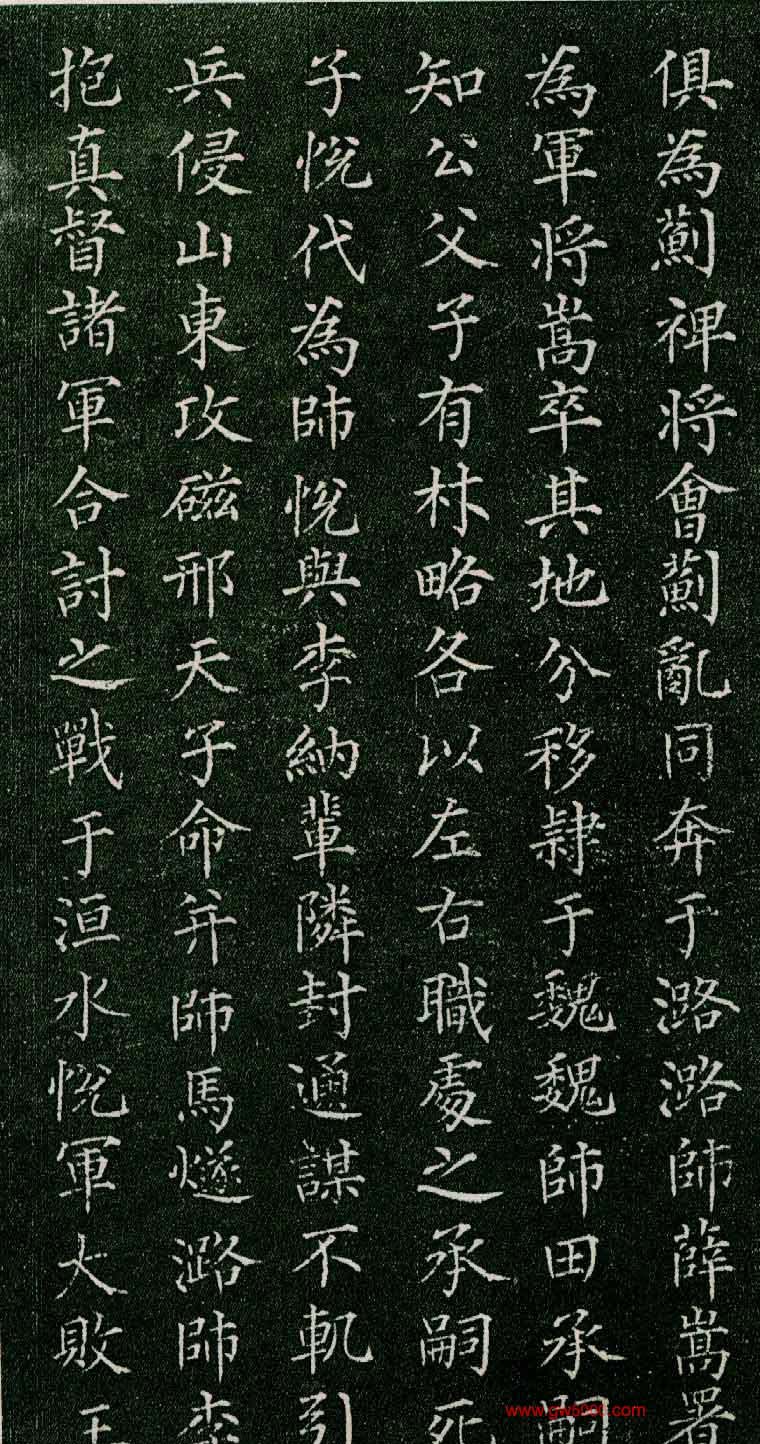 俱為薊裨將會薊亂同奔于潞潞帥薛嵩署
為軍將嵩卒其地分移隸于魏魏帥田承嗣
知公父子有材略各以左右職處之承嗣死
子悅代為帥悅與李納輩隣封通謀不軌引
兵侵山東攻磁邢天子命并帥馬燧潞帥李
抱真督諸軍合討之戰于洹水悅軍大敗王
www.gw8000.com